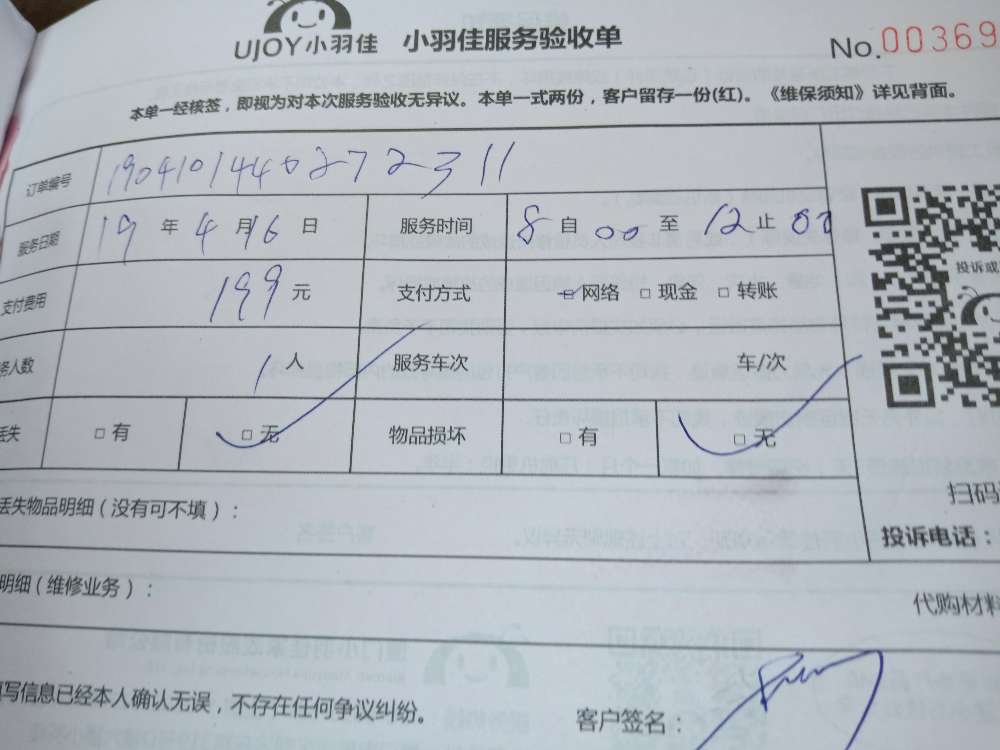 UJOY小羽佳 小羽佳服务验收单 No.00369
本单一经核签，即视为对本次服务验收无异议。本单一式两份，客户留存一份(红)。《维保须知》详见背面。
订单编号 1904101440272311
服务日期 19 年 4 月 16 日 服务时间 8 自 00 至 12 止 00
支付费用 199 元 支付方式 □网络 □现金 □转账
务人数 1 人 服务车次 车/次
丢失 □有 □无 物品损坏 □有 □无
投诉或
扫码
投诉电话：
丢失物品明细（没有可不填）：
明细（维修业务）：
代购材料
写信息已经本人确认无误，不存在任何争议纠纷。 客户签名：